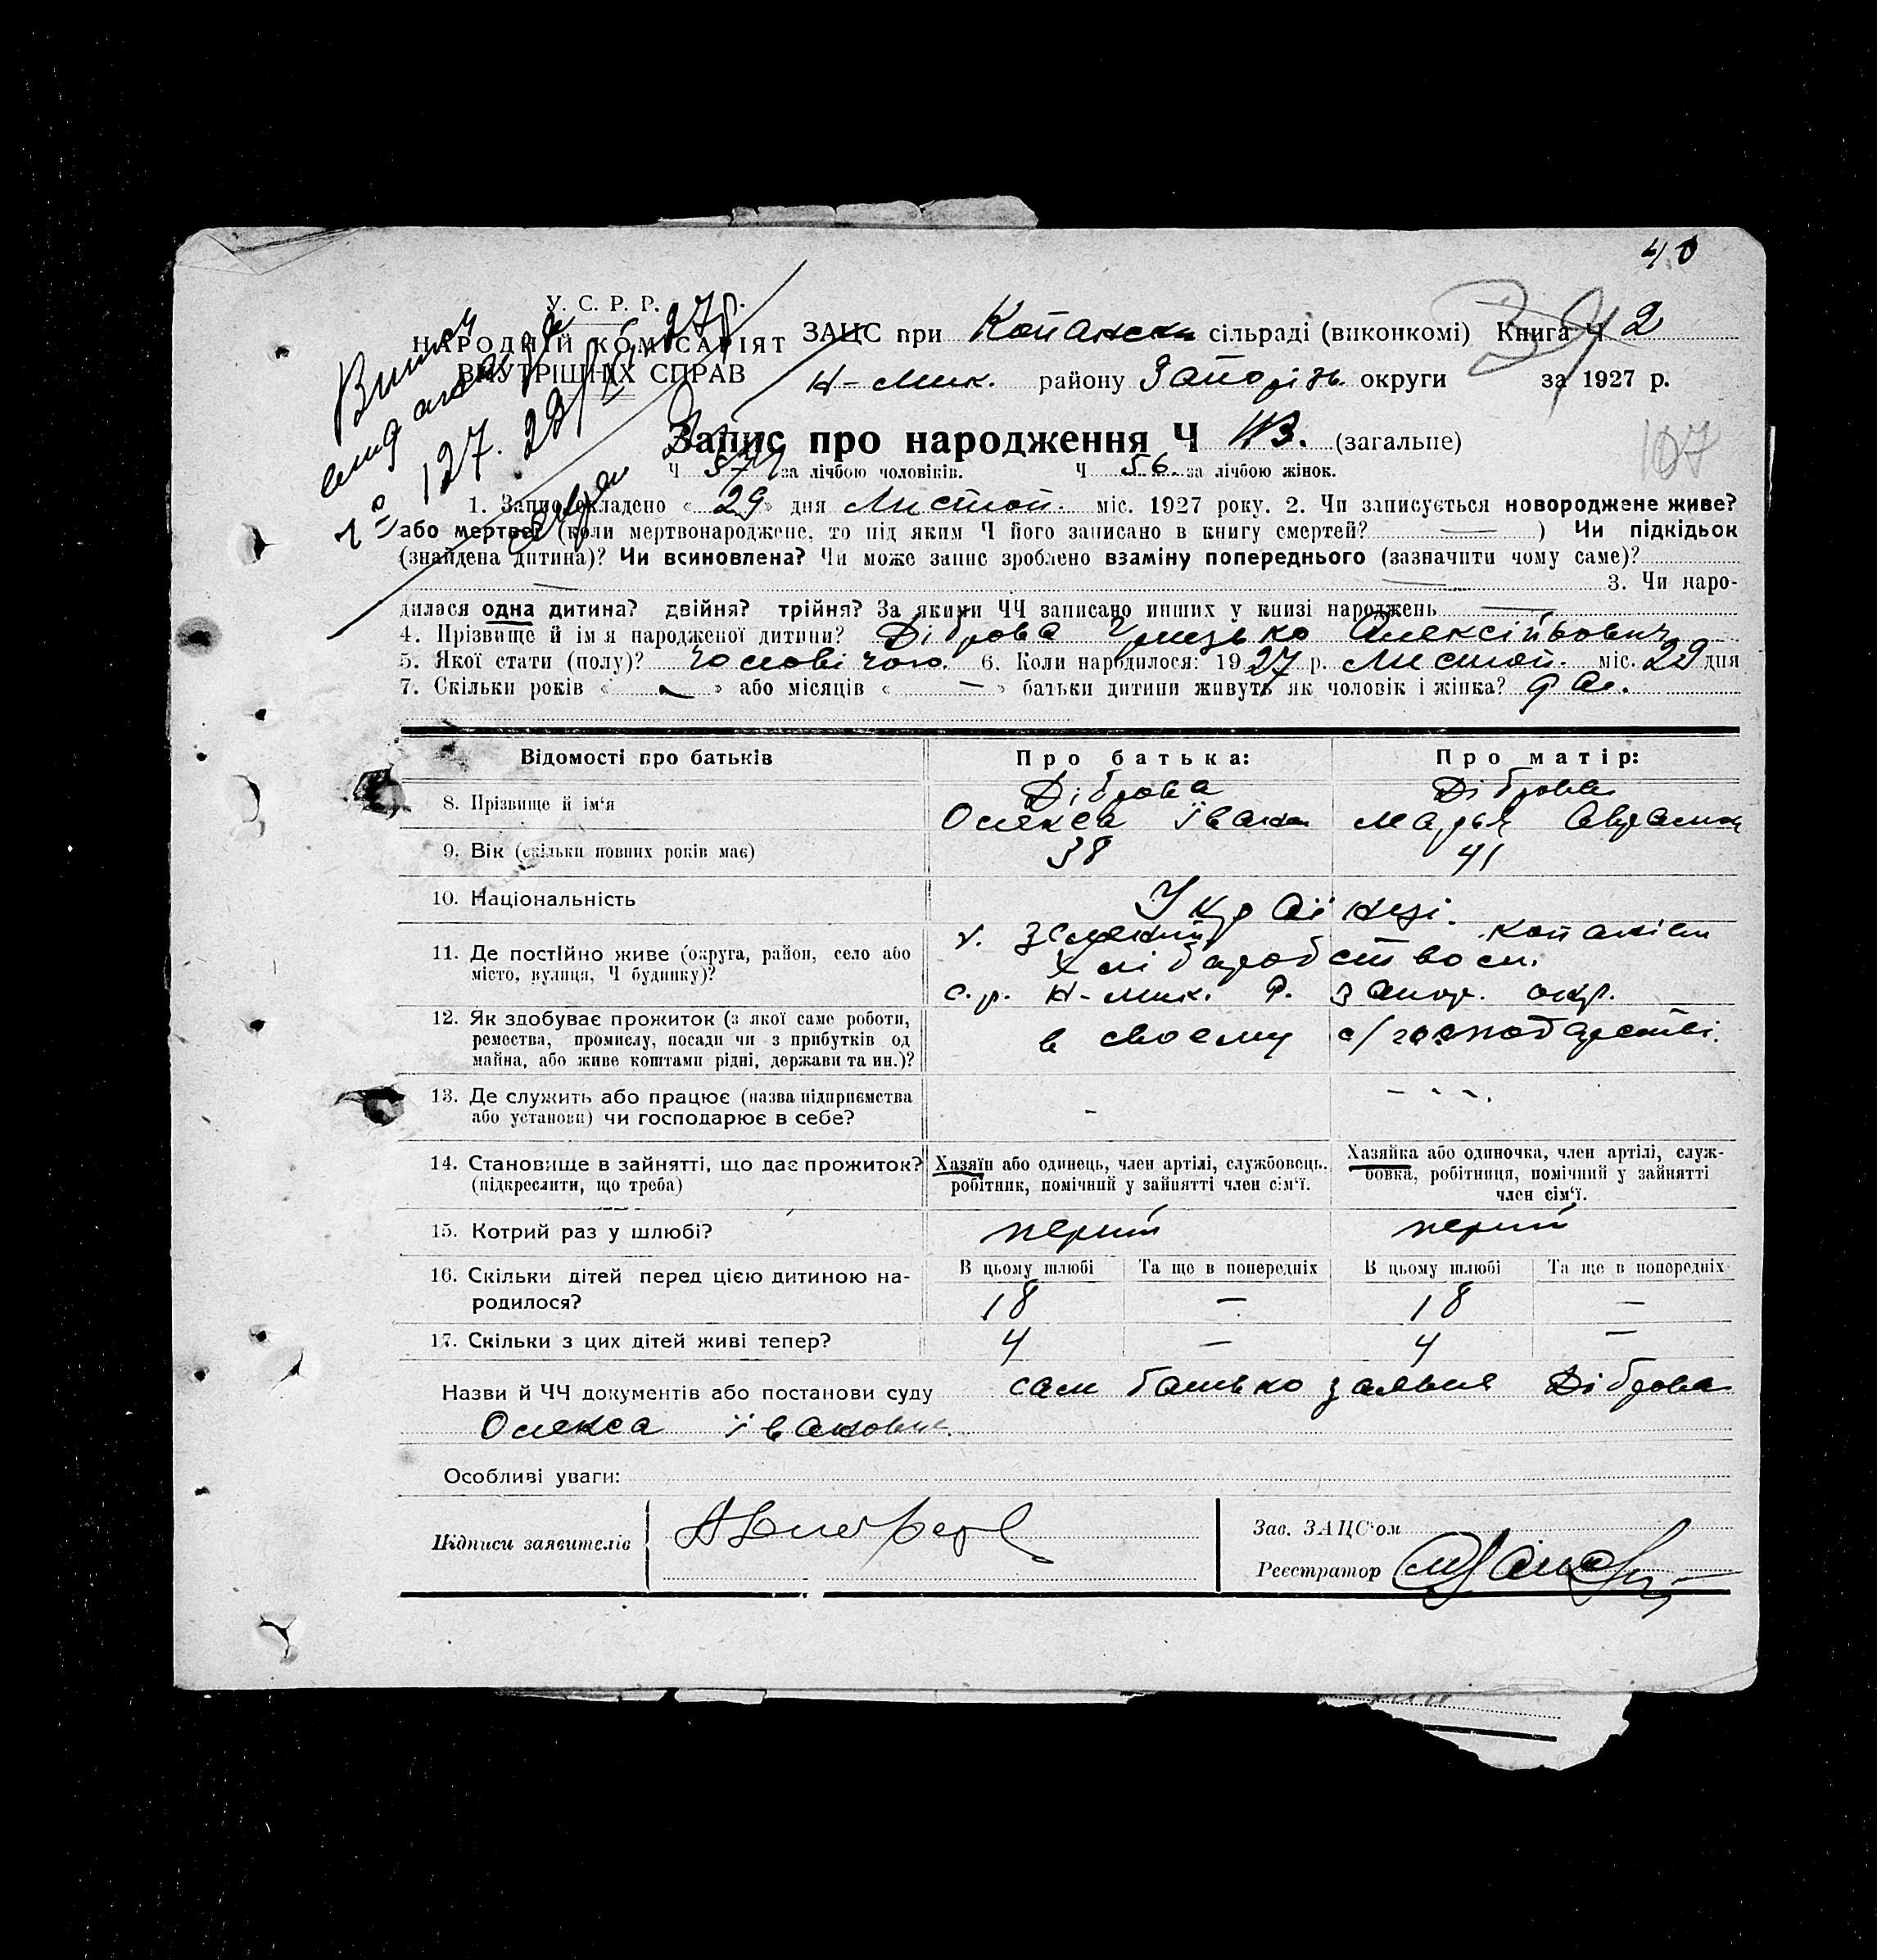 40
У. С. Р. Р.
НАРОДНІЙ КОМІСАРІЯТ
ВНУТРІШНІХ СПРАВ
ЗАЦС при Копанськ сільраді (виконкомі) Книга Ч 2
Н-Мик. району Запоріж. округи за 1927 р.
127. 29/XI-27р.
Запис про народження Ч 113. (загальне)
107
Ч 57 за лічбою чоловіків. Ч 56. за лічбою жінок.
1. Запис складено «29» дня Листоп. міс. 1927 року. 2. Чи записується новороджене живе?
або мертве? (коли мертвонароджене, то під яким Ч його записано в книгу смертей? — ) Чи підкідьок
(знайдена дитина)? Чи всиновлена? Чи може запис зроблено взаміну попереднього (зазначити чому саме)?
— — 3. Чи наро-
дилася одна дитина? двійня? трійня? За якими ЧЧ записано инших у книзі народжень —
4. Прізвище й ім'я народженої дитини? Діброва Грицько Олексійьович
5. Якої стати (полу)? Чоловічого. 6. Коли народилося: 1927 р. Листоп. міс. 29 дня
7. Скільки років « — » або місяців « — » батьки дитини живуть як чоловік і жінка?
Відомості про батьків Про батька: Про матір:
8. Прізвище й ім'я Діброва Діброва
Олекса Іван Марья Аврамов
9. Вік (скільки повних років має) 38 41
10. Національність Українці.
11. Де постійно живе (округа, район, село або
місто, вулиця, Ч будинку)?
х. Копанівск
Хліборобством.
с.р. Н-Мик. Р. Запор. окр.
12. Як здобуває прожиток (з якої саме роботи,
ремества, промислу, посади чи з прибутків од
майна, або живе коштами рідні, держави та ин.)?
в своему с/господарстві.
13. Де служить або працює (назва підприємства
або установи) чи господарює в себе?
- - - -.
14. Становище в зайнятті, що дає прожиток?
(підкреслити, що треба)
Хазяїн або одинець, член артілі, службовець,
робітник, помічний у зайнятті член сім'ї.
Хазяйка або одиночка, член артілі, служ-
бовка, робітниця, помічний у зайнятті
член сім'ї.
15. Котрий раз у шлюбі? перший перший
16. Скільки дітей перед цією дитиною на-
родилося?
В цьому шлюбі Та ще в попередніх В цьому шлюбі Та ще в попередніх
18 — 18 —
17. Скільки з цих дітей живі тепер? 4 — 4 —
Назви й ЧЧ документів або постанови суду сам батько заявив Діброва
Олекса Іванович.
Особливі уваги:
Підписи заявителів
Зав. ЗАЦС'ом
Реєстратор